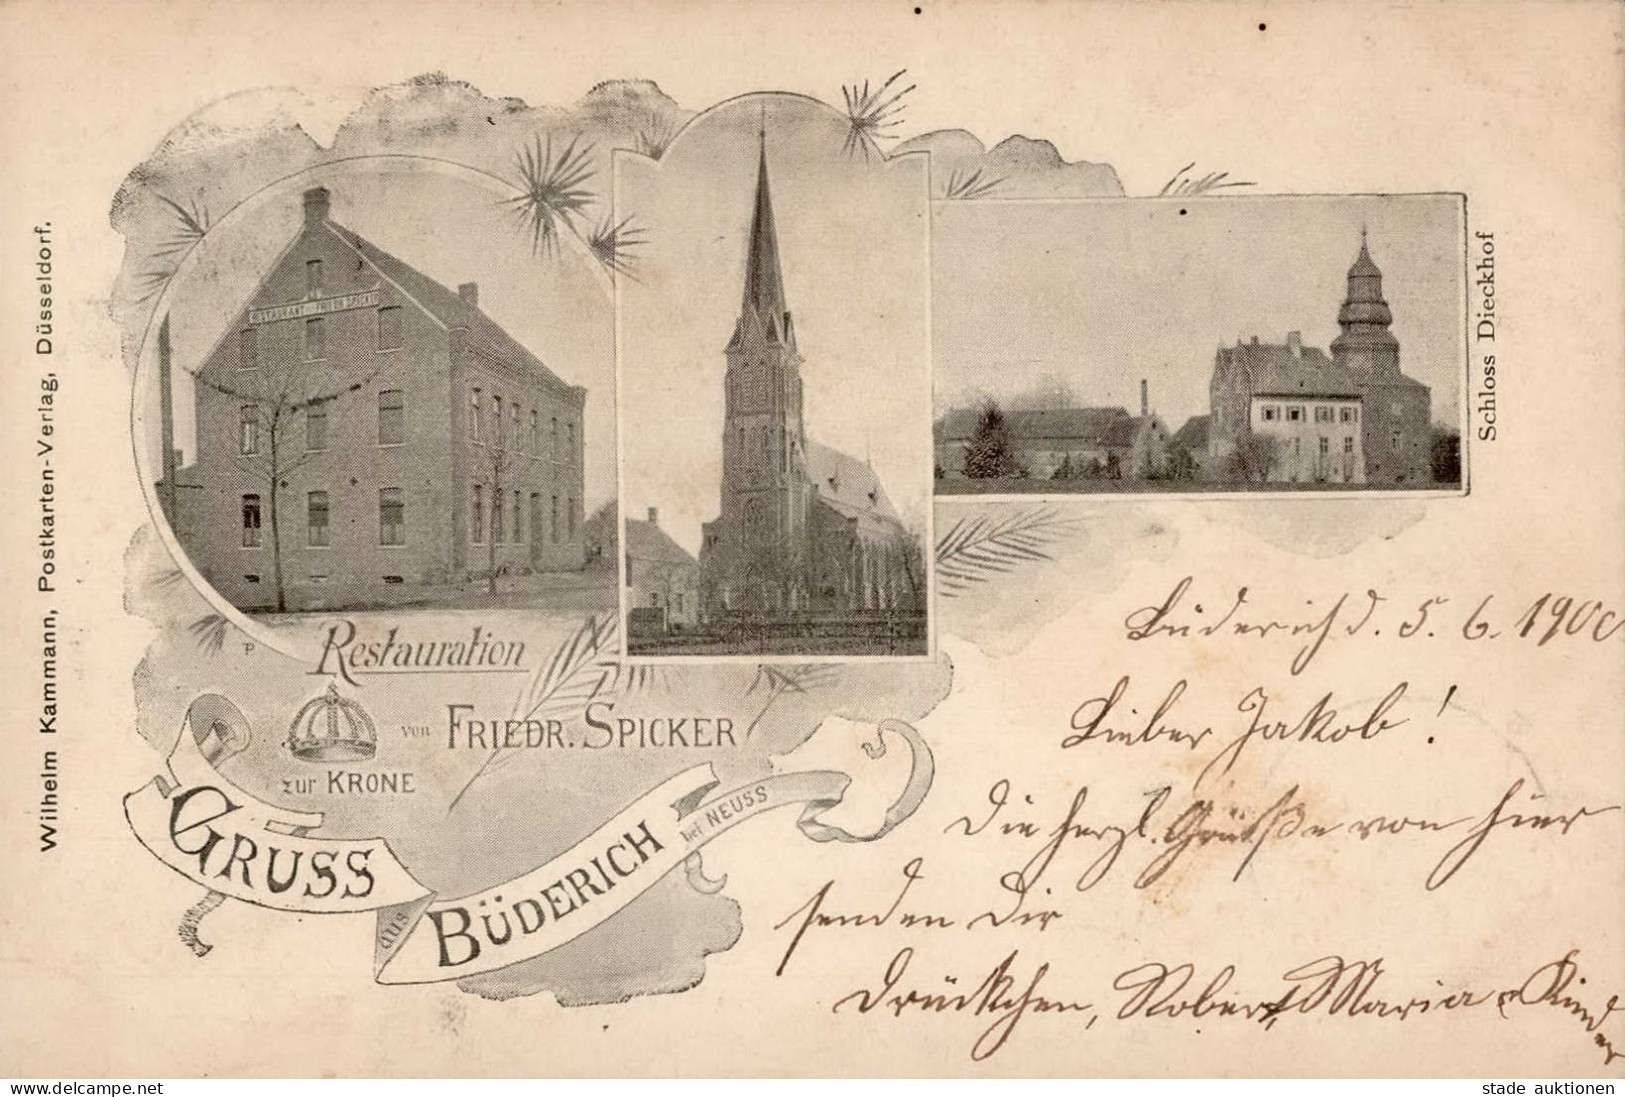 Wilhelm Kammann, Postkarten-Verlag, Düsseldorf.
RESTAURANT FRIEDR. SPICKER
Schloss Dieckhof
P
Restauration
zur KRONE
von FRIEDR. SPICKER
GRUSS
aus
BÜDERICH
bei NEUSS
Büderich d. 5. 6. 1900
Lieber Jakob!
Die herzl. Grüße von hier
senden Dir
Drückchen, Robert, Maria u Kinder
delcampe.net
stade auktionen